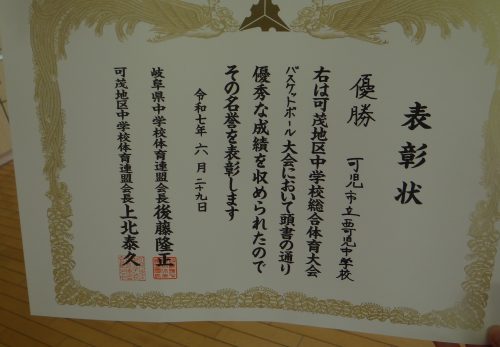 表彰状
優勝
可児市立西可児中学校
右は可茂地区中学校総合体育大会
バスケットボール大会において頭書の通り
優秀な成績を収められたので
その名誉を表彰します
令和七年六月二十九日
岐阜県中学校体育連盟会長 後藤隆正
可茂地区中学校体育連盟会長 上北泰久